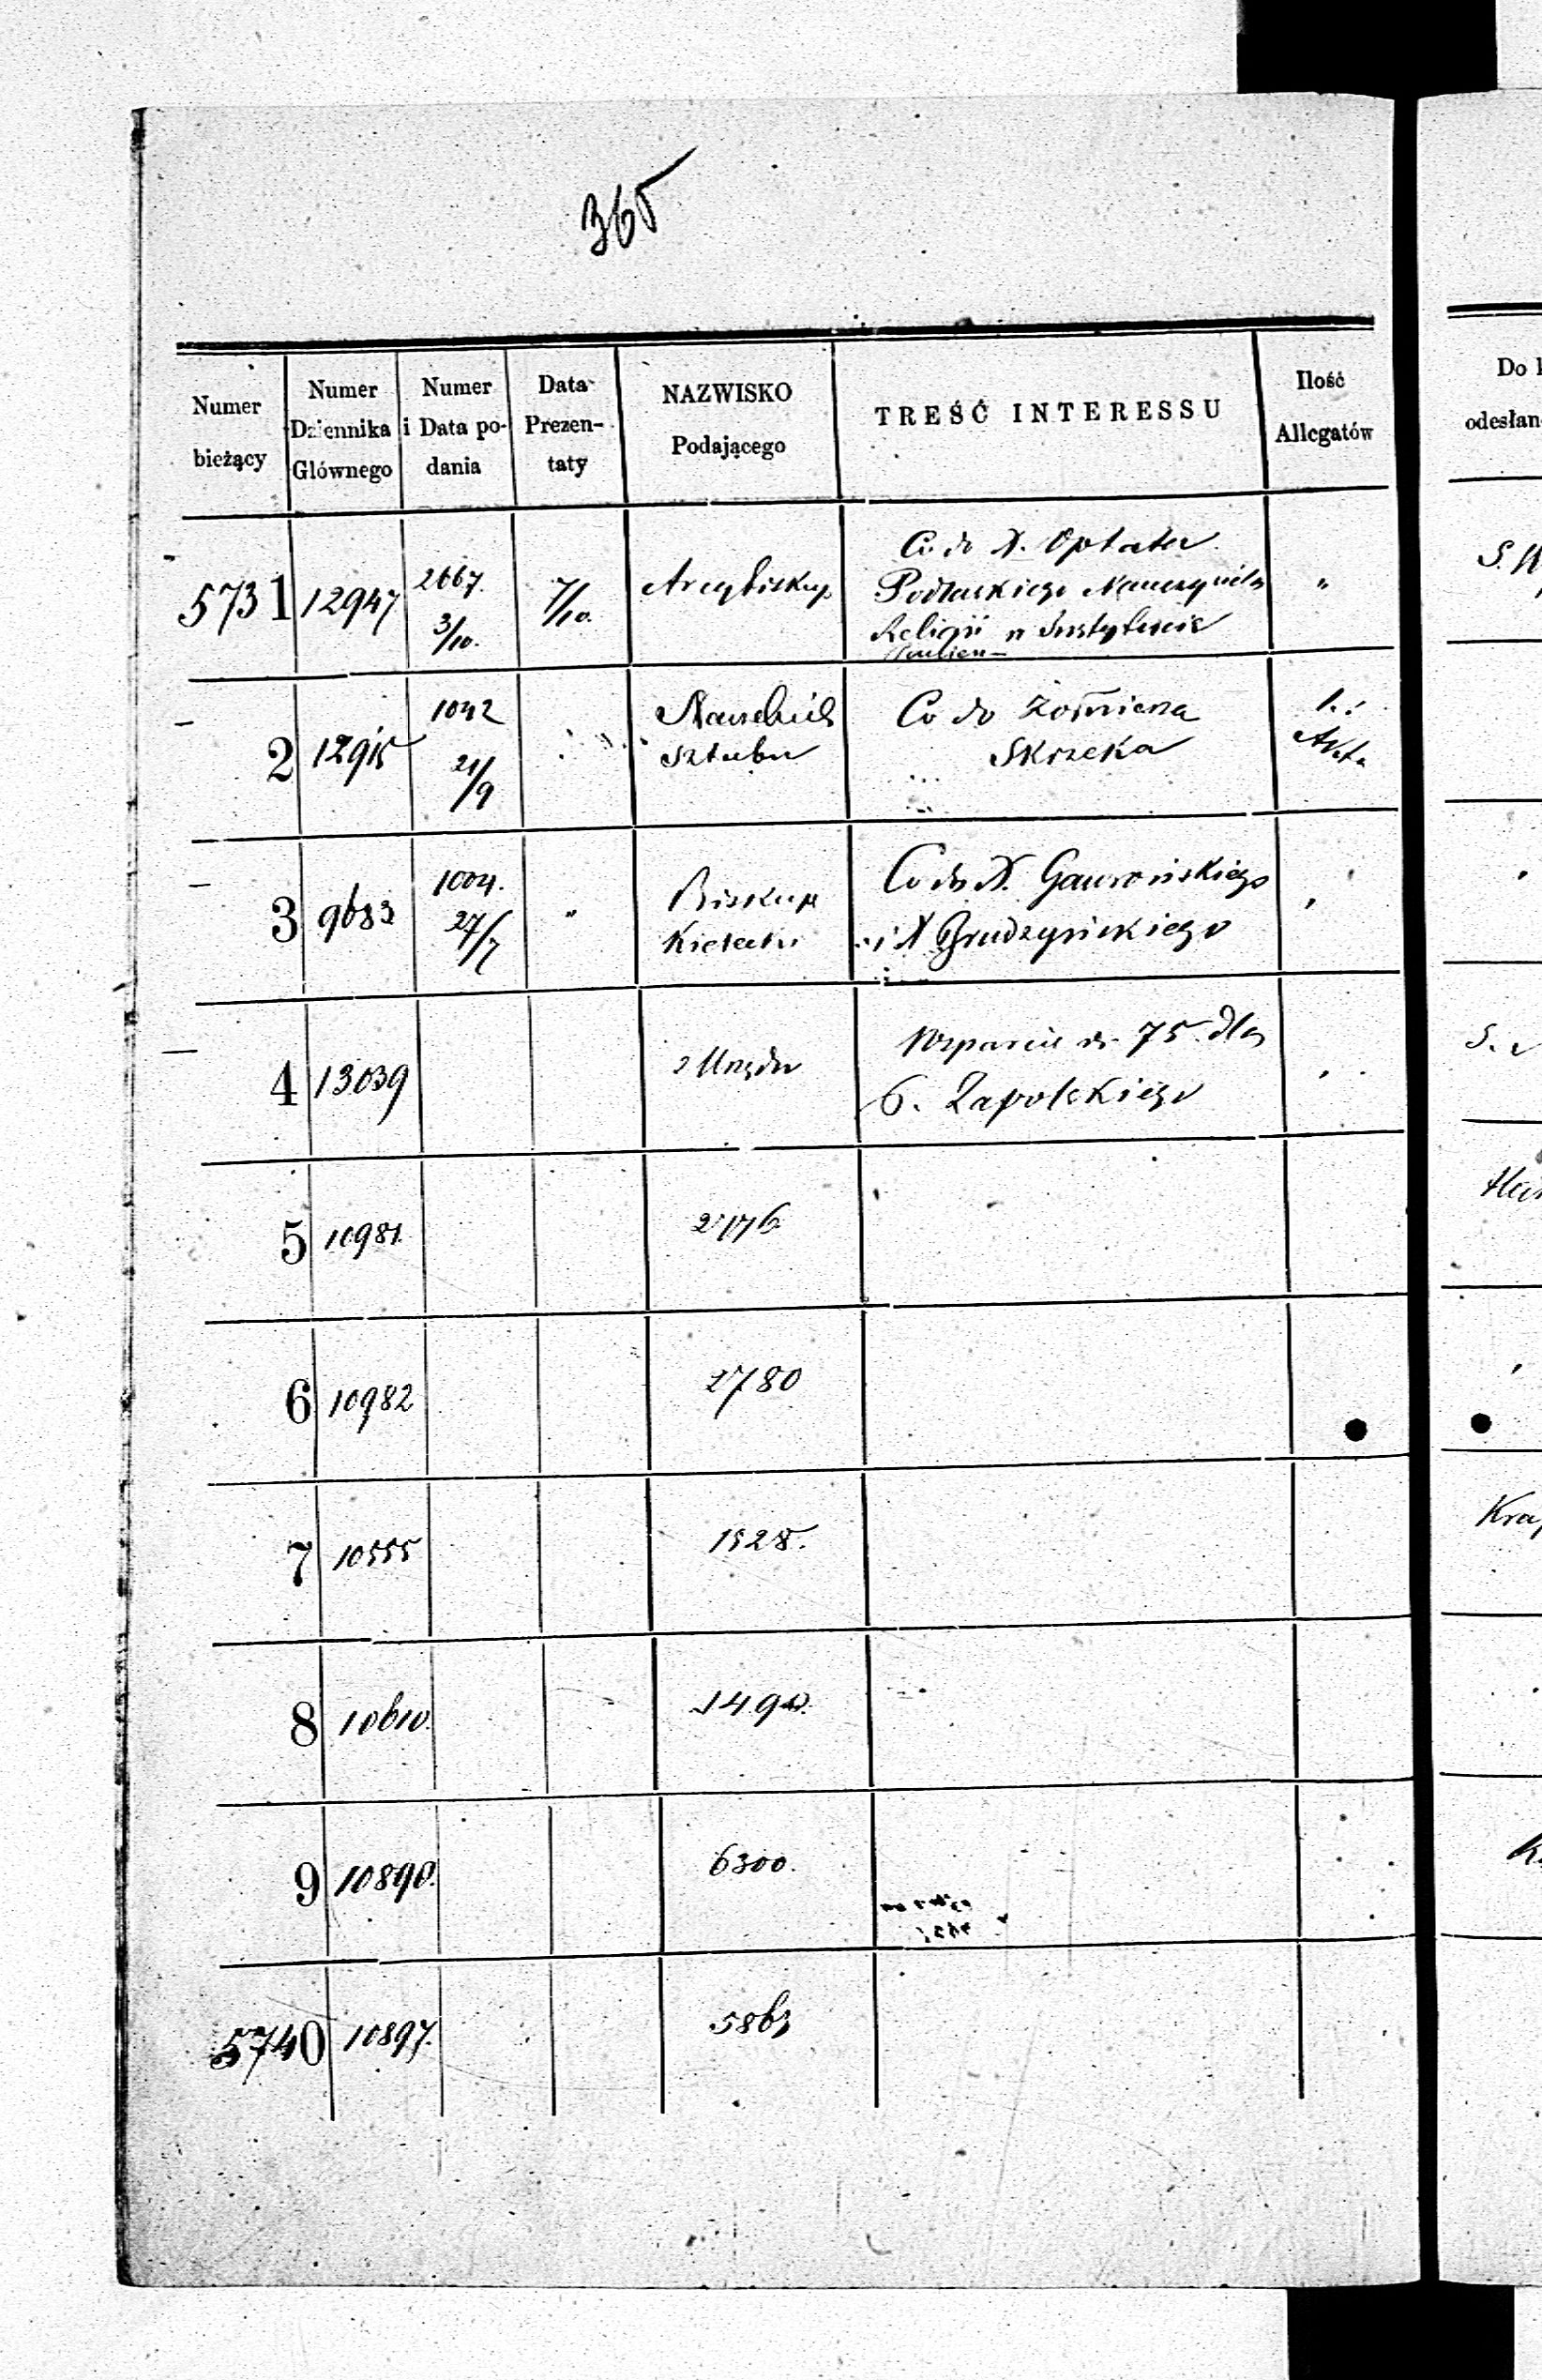 365
Numer bieżący
Numer Dziennika Głównego
Numer i Data podania
Data Prezentaty
NAZWISKO Podającego
TREŚĆ INTERESSU
Ilość Allegatów
Do
odesłan
5731 12947 2667. 3/10. 7/10. Arcybiskup Co do X. Optata
Podlaskiego Nauczyciela
Religii w Instytucie
"
2 1042 21/9 Naczelnik Sztabu Co do
Skrzeka
1. Akta
3 9683 1004. 27/7 " Biskup Kielecki Co do X. Gawrońskiego
i X Brudzyńskiego
4 13039 z Urzędu Wsparcie rs. 75. dla
6. Zapolskiego
5 10981.
6 10982 2780
7 10555 1528.
8 10610. 1490.
9 10890. 6300.
5740 10897. 5863